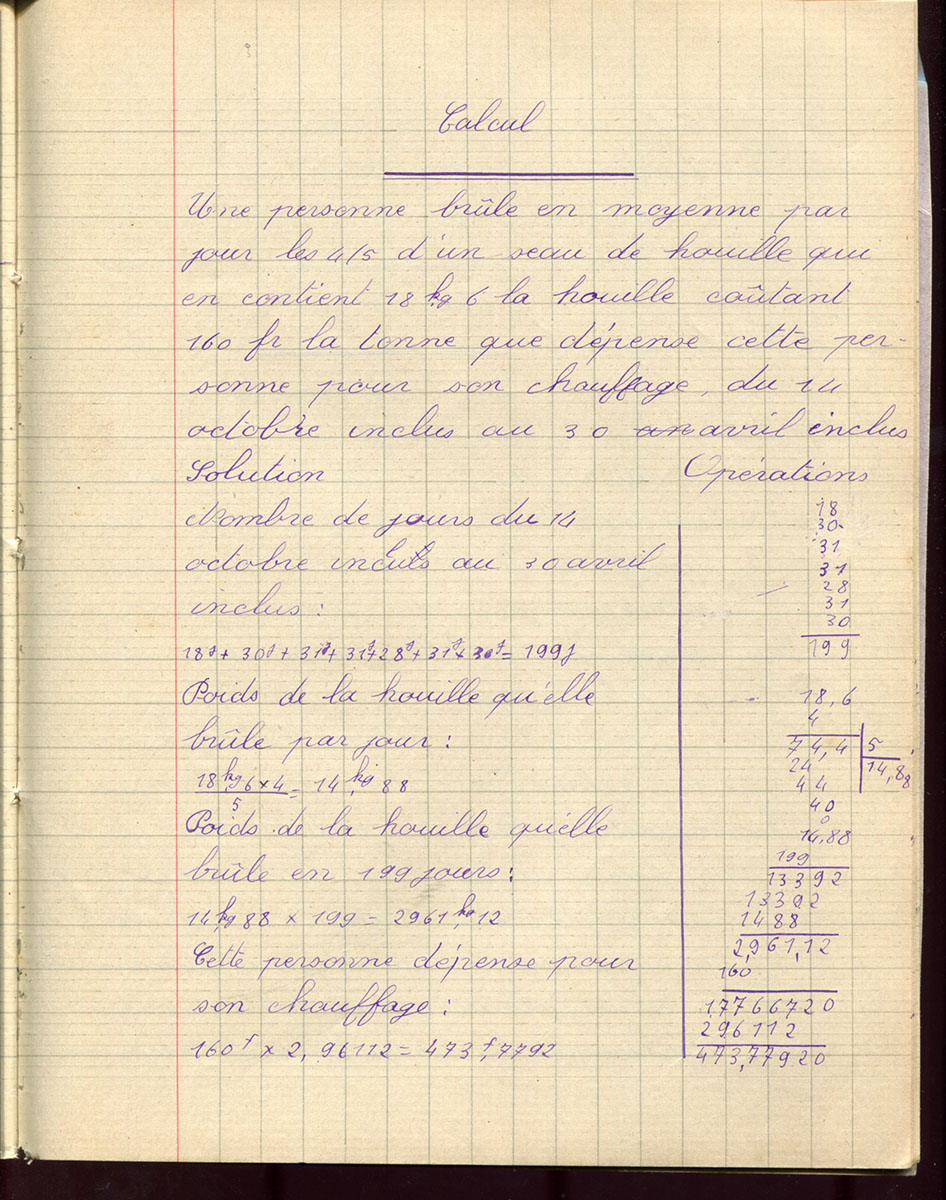 Calcul
Une personne brûle en moyenne par
jour les 4/5 d'un seau de houille qui
en contient 18 kg 6 la houille coûtant
160 fr la tonne que dépense cette per-
sonne pour son chauffage, du 14
octobre inclus au 30 an avril inclus
Solution
Nombre de jours du 14
octobre inclus au 30 avril
inclus :
18j + 30j + 31j + 31j + 28j + 31j + 30j = 199j
Poids de la houille qu'elle
brûle par jour :
18 kg 6 × 4 = 14 kg, 88
5
Poids de la houille qu'elle
brûle en 199 jours :
14 kg, 88 × 199 = 2961 kg, 12
Cette personne dépense pour
son chauffage :
160 f × 2, 96112 = 473 f, 7792
Opérations
18
30
31
31
28
31
30
199
18,6
4
74,4 5
24 14,88
44
40
0
14,88
199
13392
13392
1488
2,961,12
160
17766720
296112
473,77920